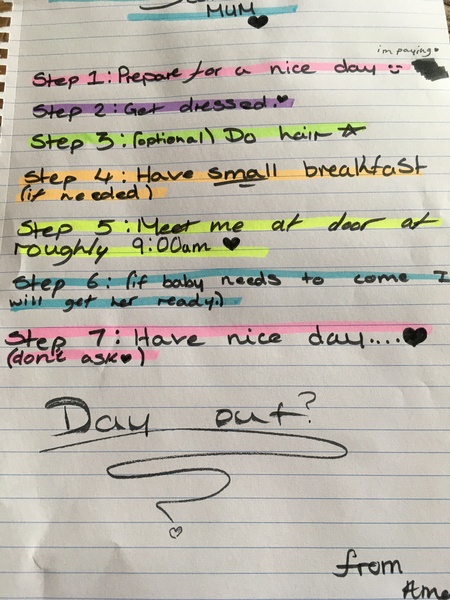 MUM
im paying
Step 1: Prepare for a nice day
Step 2: Get dressed.
Step 3: (optional) Do hair
Step 4: Have small breakfast
(if needed)
Step 5: Meet me at door at
roughly 9:00am
Step 6: (if baby needs to come I
will get her ready)
Step 7: Have nice day....
(don't ask)
Day out?
from